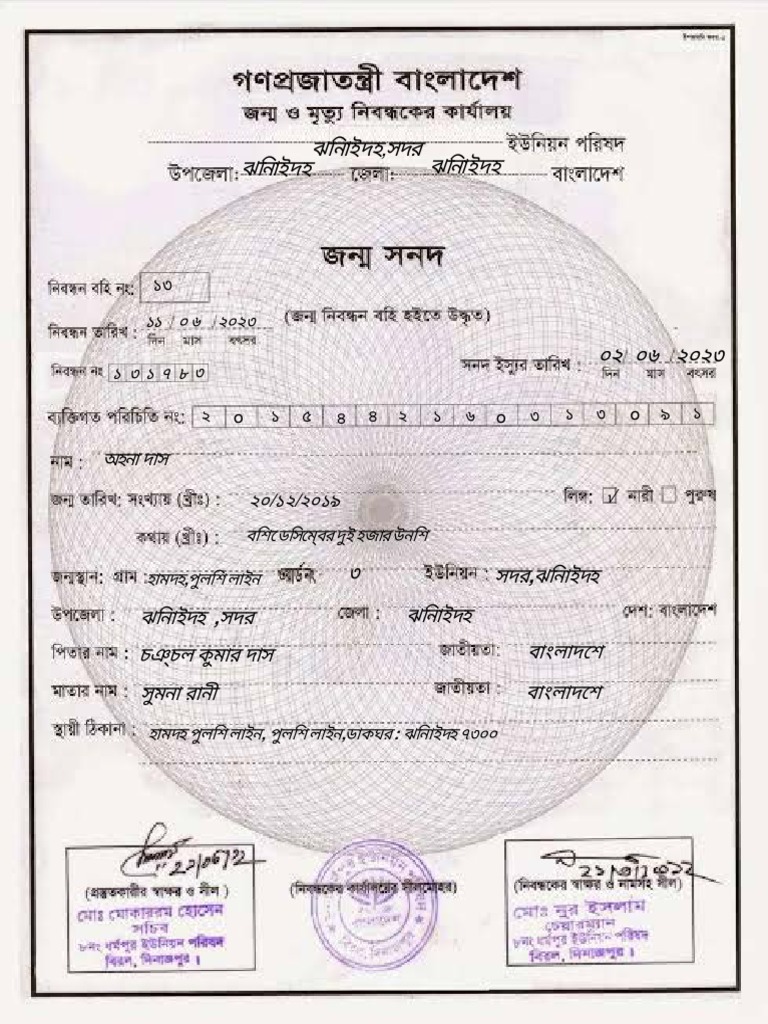 গণপ্রজাতন্ত্রী বাংলাদেশ
জন্ম ও মৃত্যু নিবন্ধকের কার্যালয়
ঝনিাইদহ,সদর ইউনিয়ন পরিষদ
উপজেলা: ঝনিাইদহ জেলা: ঝনিাইদহ বাংলাদেশ
জন্ম সনদ
নিবন্ধন বহি নং: ১৩
(জন্ম নিবন্ধন বহি হইতে উদ্ধৃত)
নিবন্ধন তারিখ : ১১ / ০৬ / ২০২৩
দিন মাস বৎসর
সনদ ইস্যুর তারিখ : ০২/ ০৬ / ২০২৩
দিন মাস বৎসর
নিবন্ধন নং ১ ৩ ১ ৭ ৮ ৩
ব্যক্তিগত পরিচিতি নং: ২ ০ ১ ৫ ৪ ৪ ২ ১ ৬ ০ ৩ ১ ৩ ০ ৯ ১
নাম : অহনা দাস
জন্ম তারিখ: সংখ্যায় (খ্রীঃ) : ২০/১২/২০১৯ লিঙ্গ: নারী পুরুষ
কথায় (খ্রীঃ) : বশিডেসিম্বের দুই হজার উনশি
জন্মস্থান: গ্রাম : হামদহ,পুলশি লাইন ওয়ার্ড নং ৩ ইউনিয়ন : সদর,ঝনিাইদহ
উপজেলা : ঝনিাইদহ ,সদর জেলা : ঝনিাইদহ দেশ: বাংলাদেশ
পিতার নাম : চঞ্চল কুমার দাস জাতীয়তা: বাংলাদশে
মাতার নাম : সুমনা রানী জাতীয়তা : বাংলাদশে
স্থায়ী ঠিকানা : হামদহ পুলশি লাইন, পুলশি লাইন,ডাকঘর : ঝনিাইদহ ৭৩০০
(প্রস্তুতকারীর স্বাক্ষর ও সীল )
(নিবন্ধকের কার্যালয়ের সীলমোহর)
(নিবন্ধকের স্বাক্ষর ও নামসহ সীল)
মোঃ মোকাররম হোসেন
সচিব
৮নং ধর্মপুর ইউনিয়ন পরিষদ
বিরল, দিনাজপুর ।
মোঃ নুর ইসলাম
চেয়ারম্যান
৮নং ধর্মপুর ইউনিয়ন পরিষদ
বিরল, দিনাজপুর ।